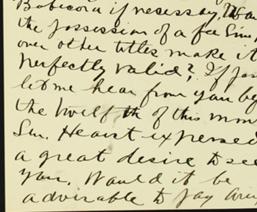 Babicora if necessary, Would
the possession of a fee Sim
over other titles make it
perfectly valid? If pos
let me hear from you by
the twelfth of this mon
Sen. Hearst expressed
a great desire to see
you. Would it be
advisable to pay any